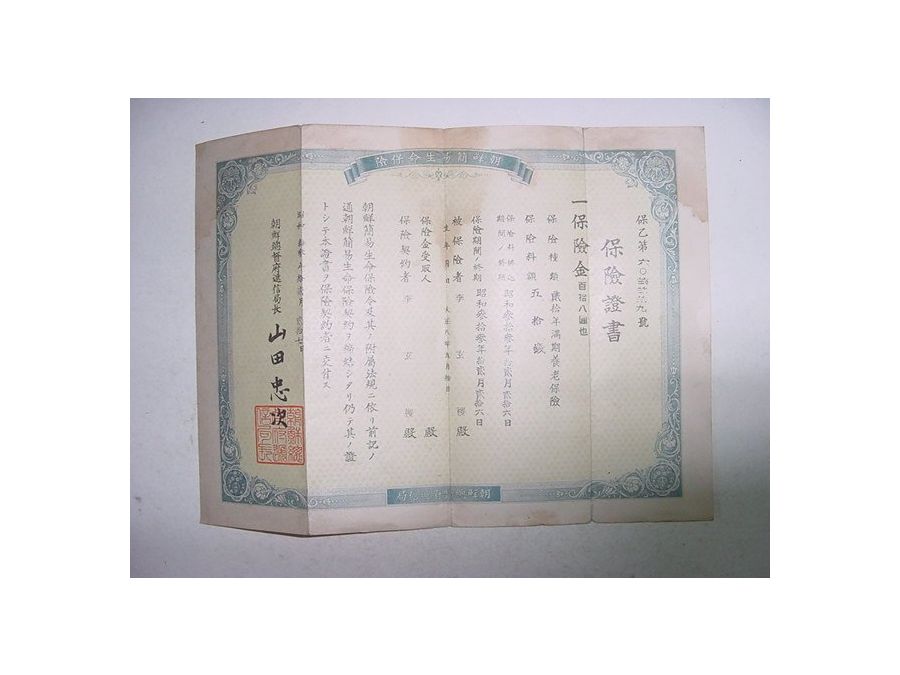 朝鮮簡易生命保險
保險證書
一保險金百拾八圓也
保險種類 貳拾年滿期養老保險
保險料額 五拾錢
保險料拂込期間ノ終期 昭和參拾參年拾貳月貳拾六日
保險期間ノ終期 昭和參拾參年拾貳月貳拾六日
被保險者 李 殿
保險金受取人 殿
保險契約者 李 殿
朝鮮簡易生命保險令及其ノ附屬法規ニ依リ前記ノ
通朝鮮簡易生命保險契約ヲ締結シタリ仍テ其ノ證
トシテ本證書ヲ保險契約者ニ交付ス
朝鮮總督府遞信局長 山田忠次
朝鮮總督府遞信局